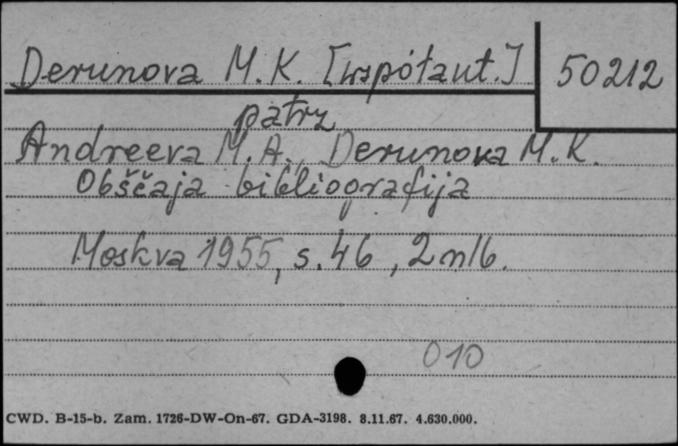 Derunova M. K. [współaut.]
50212
patrz
Andreeva M. A., Derunova M. K.
Obščaja bibliografija
Moskva 1955, s. 46, 2 nlb.
010
CWD. B-15-b. Zam. 1726-DW-On-67. GDA-3198. 8.11.67. 4.630.000.